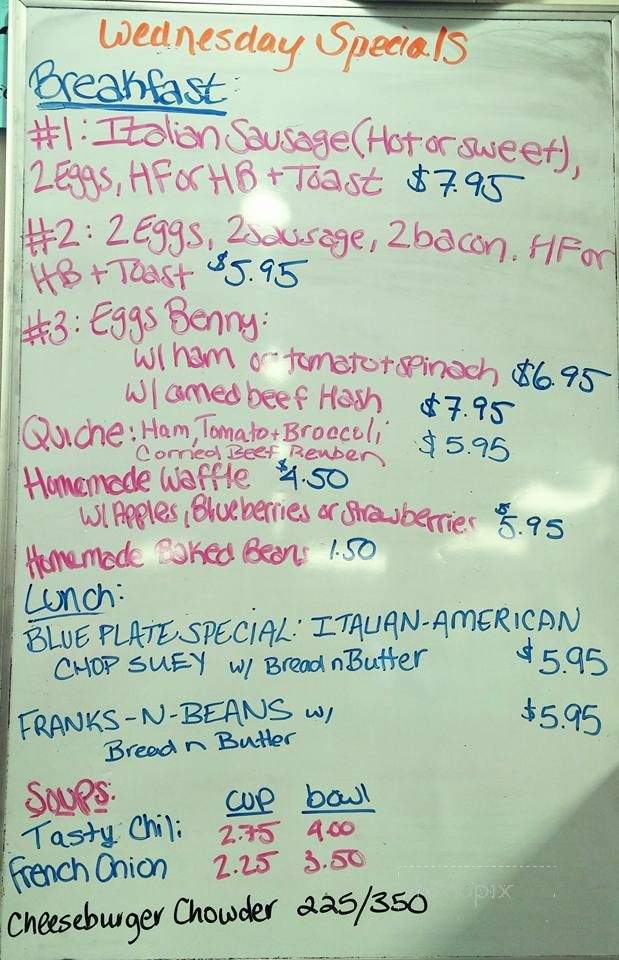 Wednesday Specials
Breakfast
#1: Italian Sausage (Hot or sweet),
2 Eggs, HF or HB + Toast $7.95
#2: 2 Eggs, 2 sausage, 2 bacon. HF or
HB + Toast $5.95
#3: Eggs Benny:
w/ ham or tomato + spinach $6.95
w/ corned beef Hash $7.95
Quiche: Ham, Tomato + Broccoli $5.95
Corned Beef Reuben
Homemade Waffle $4.50
w/ Apples, Blueberries or Strawberries $5.95
Homemade Baked Beans 1.50
Lunch:
BLUE PLATE SPECIAL: ITALIAN-AMERICAN
CHOP SUEY w/ Bread n Butter $5.95
FRANKS-N-BEANS w/ $5.95
Bread n Butter
Soups: cup bowl
Tasty Chili 2.75 4.00
French Onion 2.25 3.50
Cheeseburger Chowder 225/350